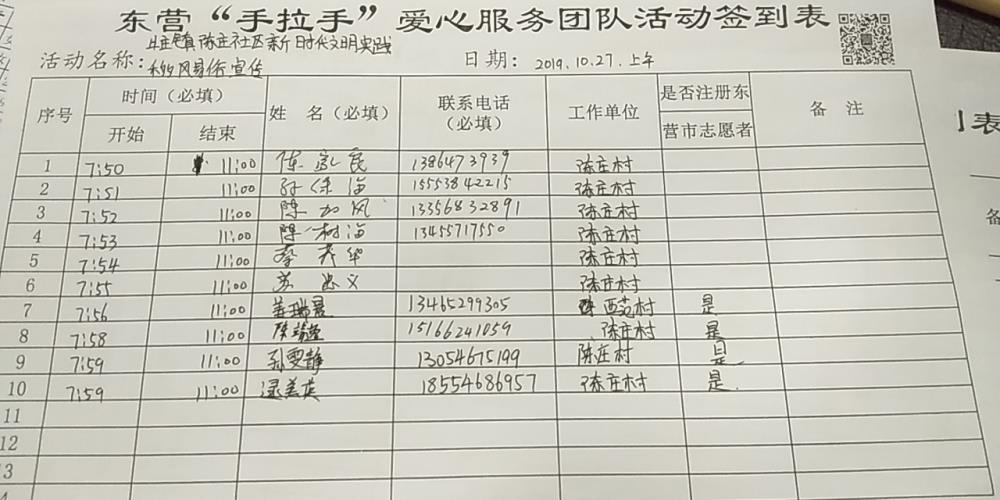 东营“手拉手”爱心服务团队活动签到表
陈庄社区新时代文明实践
活动名称: 移风易俗宣传 日期: 2019.10.27.上午
序号 时间(必填) 姓 名(必填) 联系电话(必填) 工作单位 是否注册东营市志愿者 备 注
开始 结束
1 7:50 11:00 陈 民 1386473939 陈庄村
2 7:51 11:00 孙保海 15553842215 陈庄村
3 7:52 11:00 陈加风 13356832891 陈庄村
4 7:53 11:00 陈树海 13455717550 陈庄村
5 7:54 11:00 蔡秀华 陈庄村
6 7:55 11:00 苏忠义 陈庄村
7 7:56 11:00 13465299305 西范村 是
8 7:58 11:00 15166241059 陈庄村 是
9 7:59 11:00 孙雯静 13054675199 陈庄村 是
10 7:59 11:00 18554686957 陈庄村 是
11
12
13
表
备